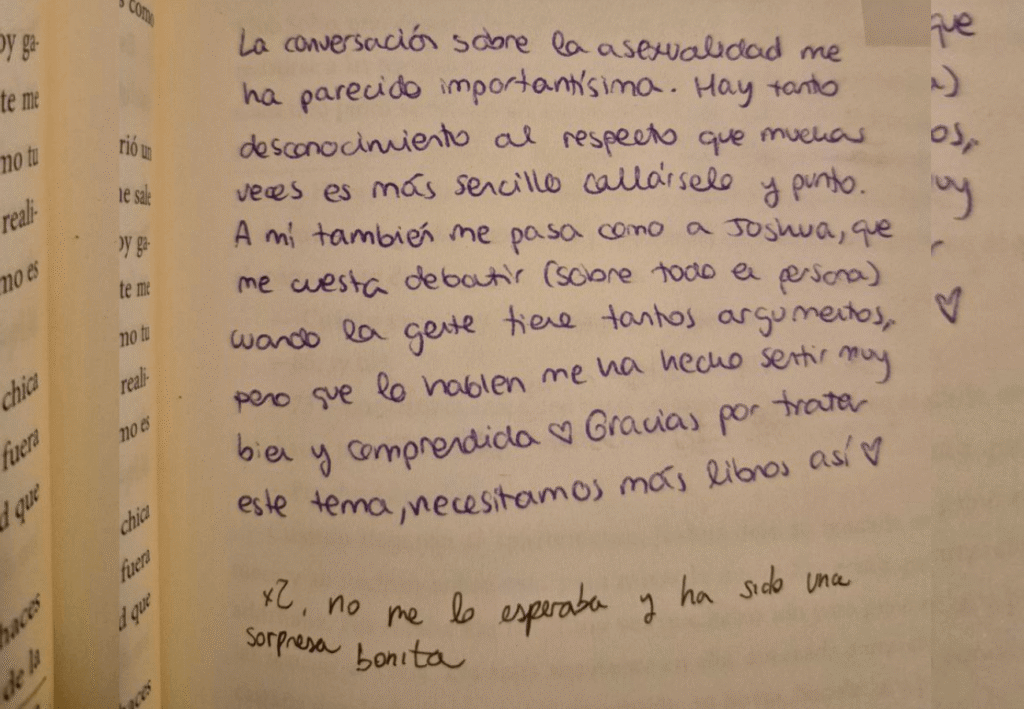 s como
oy ga-
te me
no tu
reali-
mo es
chica
fuera
d que
haces
de la
rió un
ne sale
oy ga-
te me
no tu
reali-
no es
chica
fuera
d que
haces
La conversación sobre la asexualidad me
ha parecido importantísima. Hay tanto
desconocimiento al respecto que muchas
veces es más sencillo callárselo y punto.
A mí también me pasa como a Joshua, que
me cuesta debatir (sobre todo en persona)
cuando la gente tiene tantos argumentos,
pero que lo hablen me ha hecho sentir muy
bien y comprendida ♡ Gracias por tratar
este tema, necesitamos más libros así ♡
x2, no me lo esperaba y ha sido una
sorpresa bonita
que
a)
os,
uy
♡